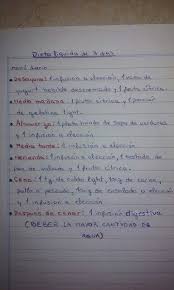 Dieta liquida de 3 dias
menú diario
• Desayuno: 1 infusión a elección, 1 vaso de
yogurt bebible descremado y 1 fruta cítrica.
• Media mañana: 1 fruta cítrica y 1 porción
de gelatina light.
• Almuerzo: 1 plato hondo de sopa de verduras
y 1 infusión a elección
• Media tarde: 1 infusión a elección
• Merienda: 1 infusión a elección, 1 tostada de
pan de salvado y 1 fruta cítrica.
• Cena: 1 taza de caldo light, 1 de carne,
pollo o pescado, 1 de ensalada a elección
y 1 infusión a elección
• Despues de cenar: 1 infusión digestiva
(BEBER LA MAYOR CANTIDAD DE
AGUA)